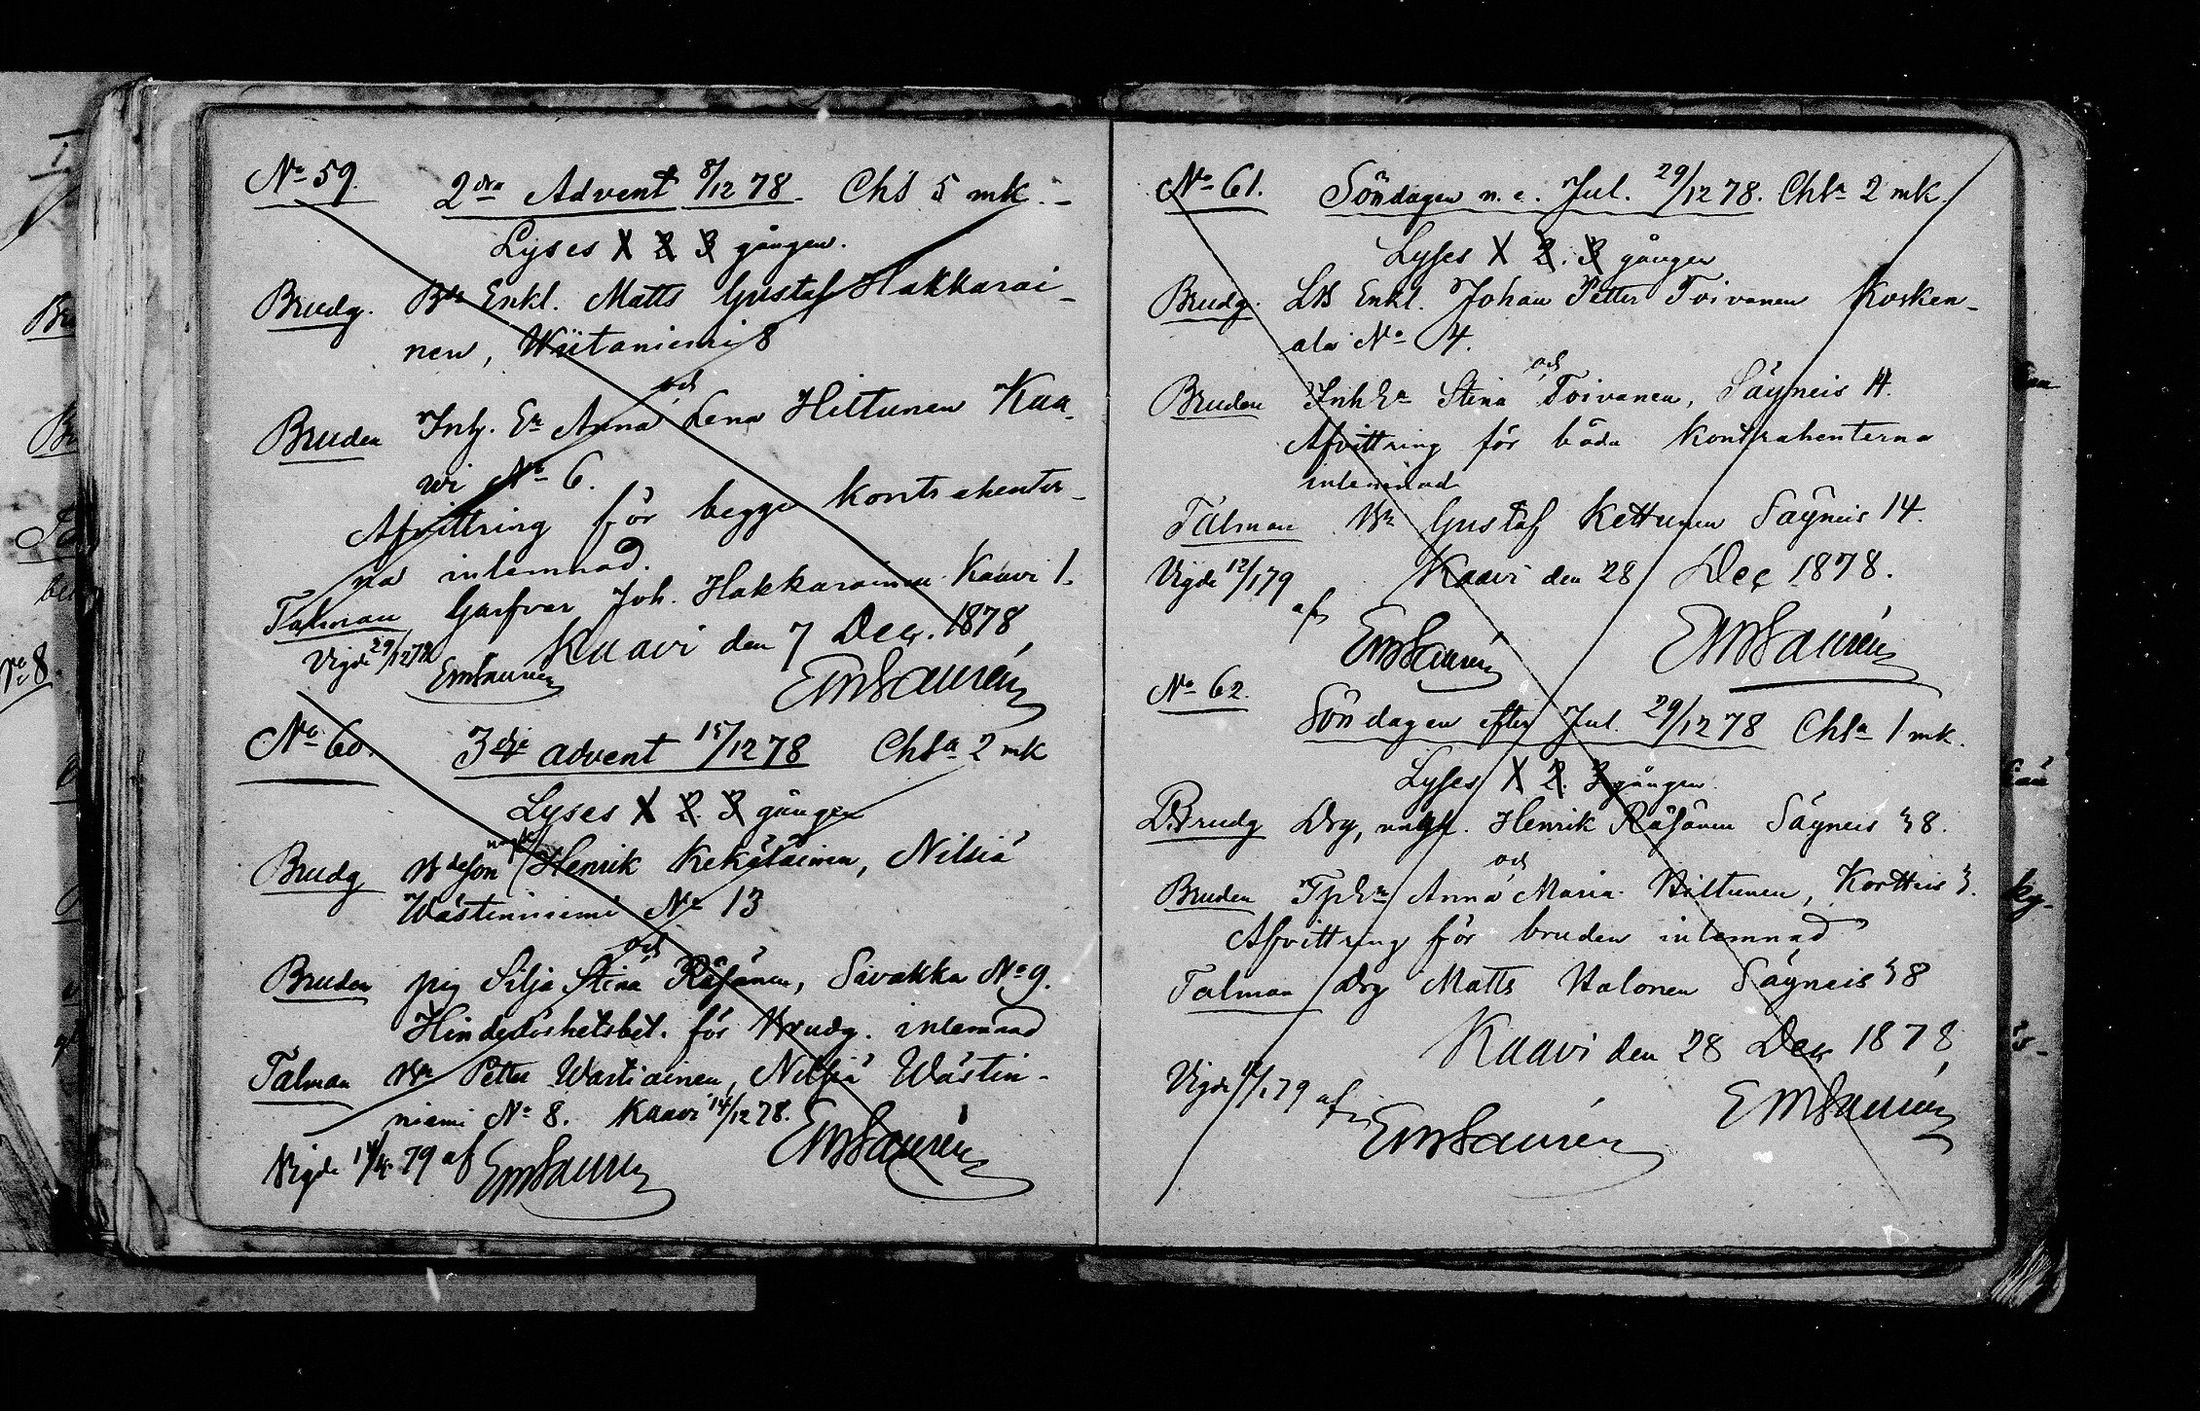 No 59. 2dra Advent 8/12 78. Chs 5 mk. –
Lyses 1 2 3 gången.
Brudg. Bn Enkl. Matts Gustaf Hakkarai-
nen, Wiitaniemi 8
och
Bruden Inh. Er Anna Lena Hiltunen Kaa-
wi No 6.
Afvittring för begge kontrahenter-
na inlemnad.
Talman Garfvar Joh. Hakkarainen Kaavi 1.
Kaavi den 7 Dec. 1878
Vigde 29/12 78 EmSaurén EmSaurén
No 60. 3dje advent 15/12 78 Chsa 2 mk
Lyses 1 2. 3 gången
Brudg Bdeson Henrik Kekäläinen, Nilsiä
Wästinniemi No 13
och
Bruden pig Silja Stina Räsänen, Savakka No 9.
Hinderlöshetsbet. för Brudg. inlemnad
Talman Bn Petter Wartiainen, Nilsiä Wästin-
niemi No 8. Kaavi 14/12 78.
EmSaurén
Vigde 79 af EmSaurén
No 61. Söndagen n. e. Jul. 29/12 78. Chsa 2 mk.
Lyses 1 2. 3 gången
Brudg. LB Enkl. Johan Petter Toivanen Kosken-
ala No 4.
och
Bruden Inh Ea Stina Toivanen, Säyneis 14.
Afvittring för båda kontrahenterna
inlemnad
Talman Bn Gustaf Kettunen Säyneis 14.
Vigde 12/1 79 Kaavi den 28 Dec 1878.
af
EmSaurén EmSaurén
No 62.
Söndagen efter Jul. 29/12 78 Chsa 1 mk.
Lyses 1 2. 3 gången.
Brudg Drg, ungk. Henrik Räsänen Säyneis 38.
och
Bruden Anna Maria Hiltunen, Kortteis 3.
Afvittring för bruden inlemnad
Talman drg Matts Halonen Säyneis 38
Kaavi den 28 Dec 1878
EmSaurén
Vigde 79 af
EmSaurén
No 8.